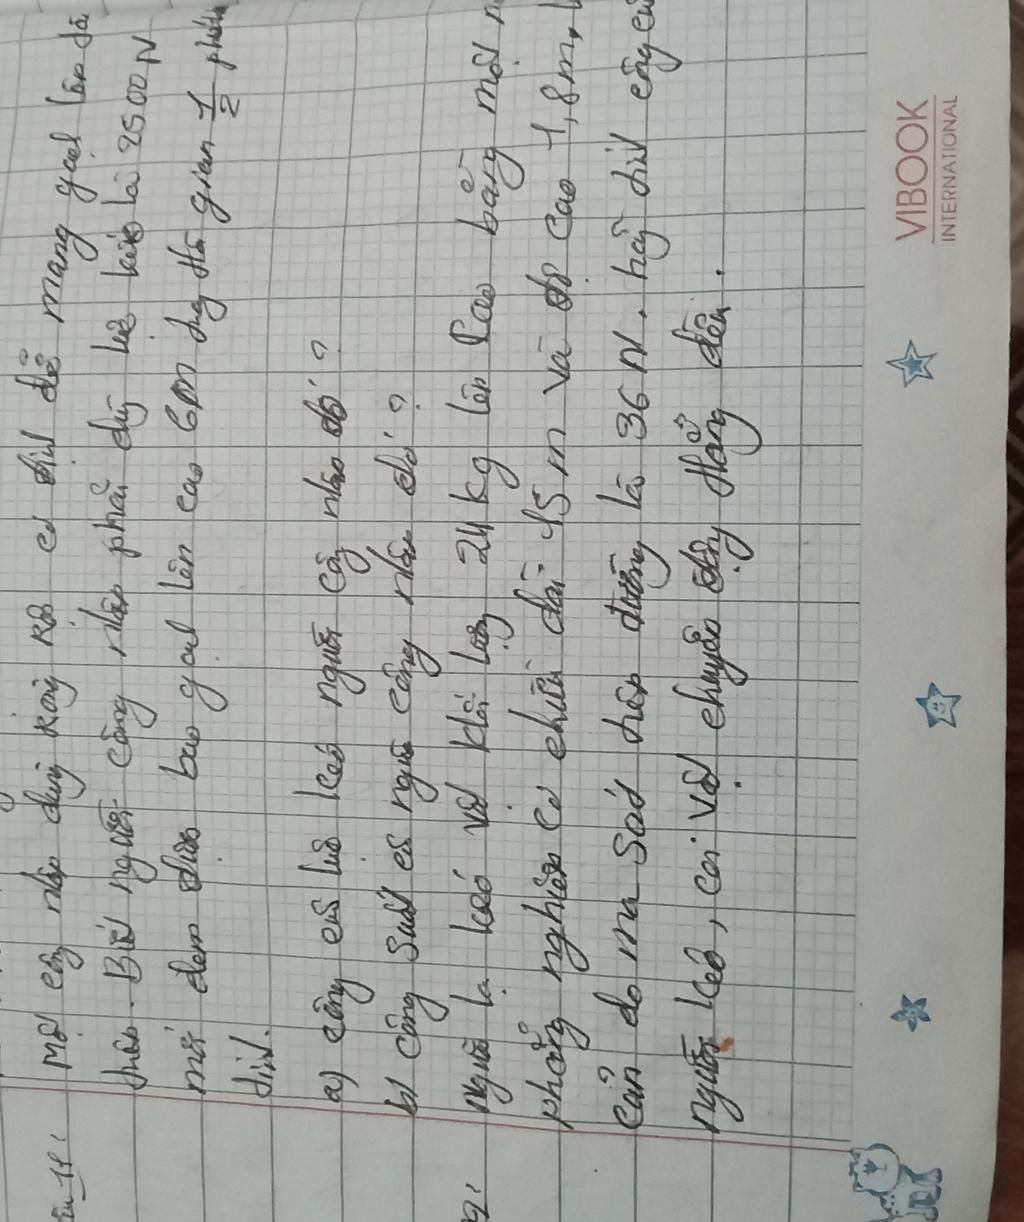 Một công nhân dùng ròng rọc cố định để mang gạch lên tầng
trên. Biết người công nhân phải dùng lực kéo là 2500 N
mới đem được bao gạch lên cao 6m trong thời gian 1/2 phút
tính.
a) công của lực kéo người công nhân đó?
b) công suất của người công nhân đó?
người ta kéo vật khối lượng 24 kg lên cao bằng một
phẳng nghiêng có chiều dài 15 m và độ cao 1,8 m,
cản do ma sát trên đường là 36 N. hãy tính công
người kéo, coi vật chuyển động thẳng đều.
VIBOOK
INTERNATIONAL